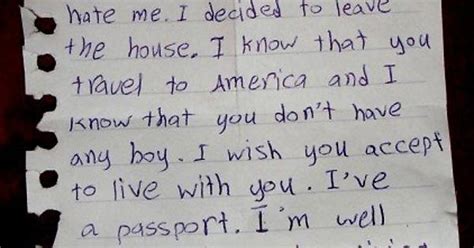 hate me. I decided to leave
the house. I know that you
travel to America and I
know that you don't have
any boy. I wish you accept
to live with you. I've
a passport. I'm well